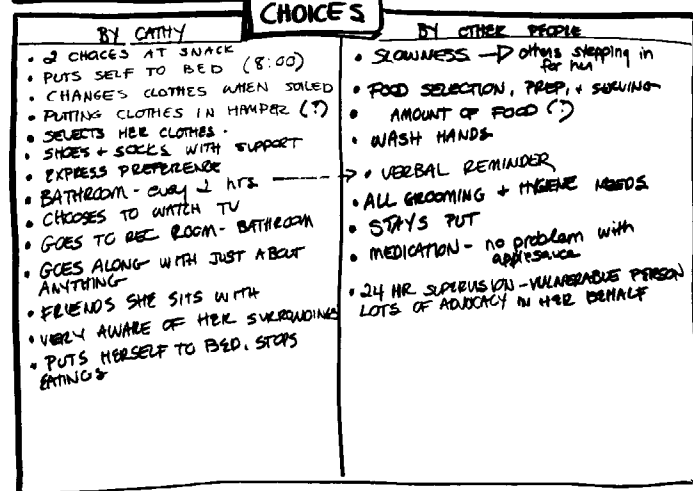 CHOICES
BY CATHY
• 2 CHOICES AT SNACK
• PUTS SELF TO BED (8:00)
• CHANGES CLOTHES WHEN SOILED
• PUTTING CLOTHES IN HAMPER (?)
• SELECTS HER CLOTHES.
• SHOES + SOCKS WITH SUPPORT
• EXPRESS PREFERENCE
• BATHROOM - every 2 hrs
• CHOOSES TO WATCH TV
• GOES TO REC ROOM - BATHROOM
• GOES ALONG WITH JUST ABOUT
ANYTHING
• FRIENDS SHE SITS WITH
• VERY AWARE OF HER SURROUNDINGS
• PUTS HERSELF TO BED, STOPS
EATING
BY OTHER PEOPLE
• SLOWNESS → others stepping in
for her
• FOOD SELECTION, PREP, + SERVING
• AMOUNT OF FOOD (?)
• WASH HANDS
• VERBAL REMINDER
• ALL GROOMING + HYGIENE NEEDS
• STAYS PUT
• MEDICATION - no problem with
applesauce
• 24 HR SUPERVISION - VULNERABLE PERSON
LOTS OF ADVOCACY IN HER BEHALF